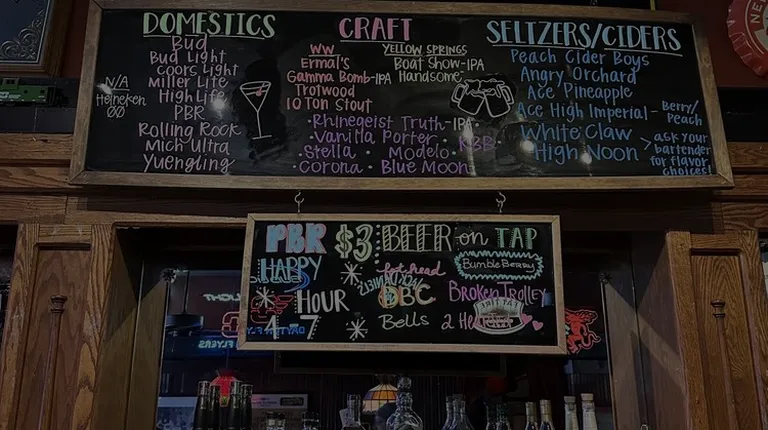 DOMESTICS
Bud
Bud Light
Coors Light
Miller Lite
High Life
PBR
Rolling Rock
Mich Ultra
Yuengling
N/A
Heineken
00
CRAFT
WW
Ermal's
Gamma Bomb-IPA
Trotwood
10 Ton Stout
YELLOW SPRINGS
Boat Show-IPA
Handsome
•Rhinegeist Truth-IPA
•Vanilla Porter • KBB
•Stella • Modelo
•Corona • Blue Moon
SELTZERS/CIDERS
Peach Cider Boys
Angry Orchard
Ace Pineapple
Ace High Imperial - Berry/Peach
White Claw
High Noon
> ask your
bartender
for flavor
choices!
PBR $3
HAPPY
HOUR
4-7
BEER on TAP
DBC
Bells 2 Hearted
BumbleBerry
Broken Trolley